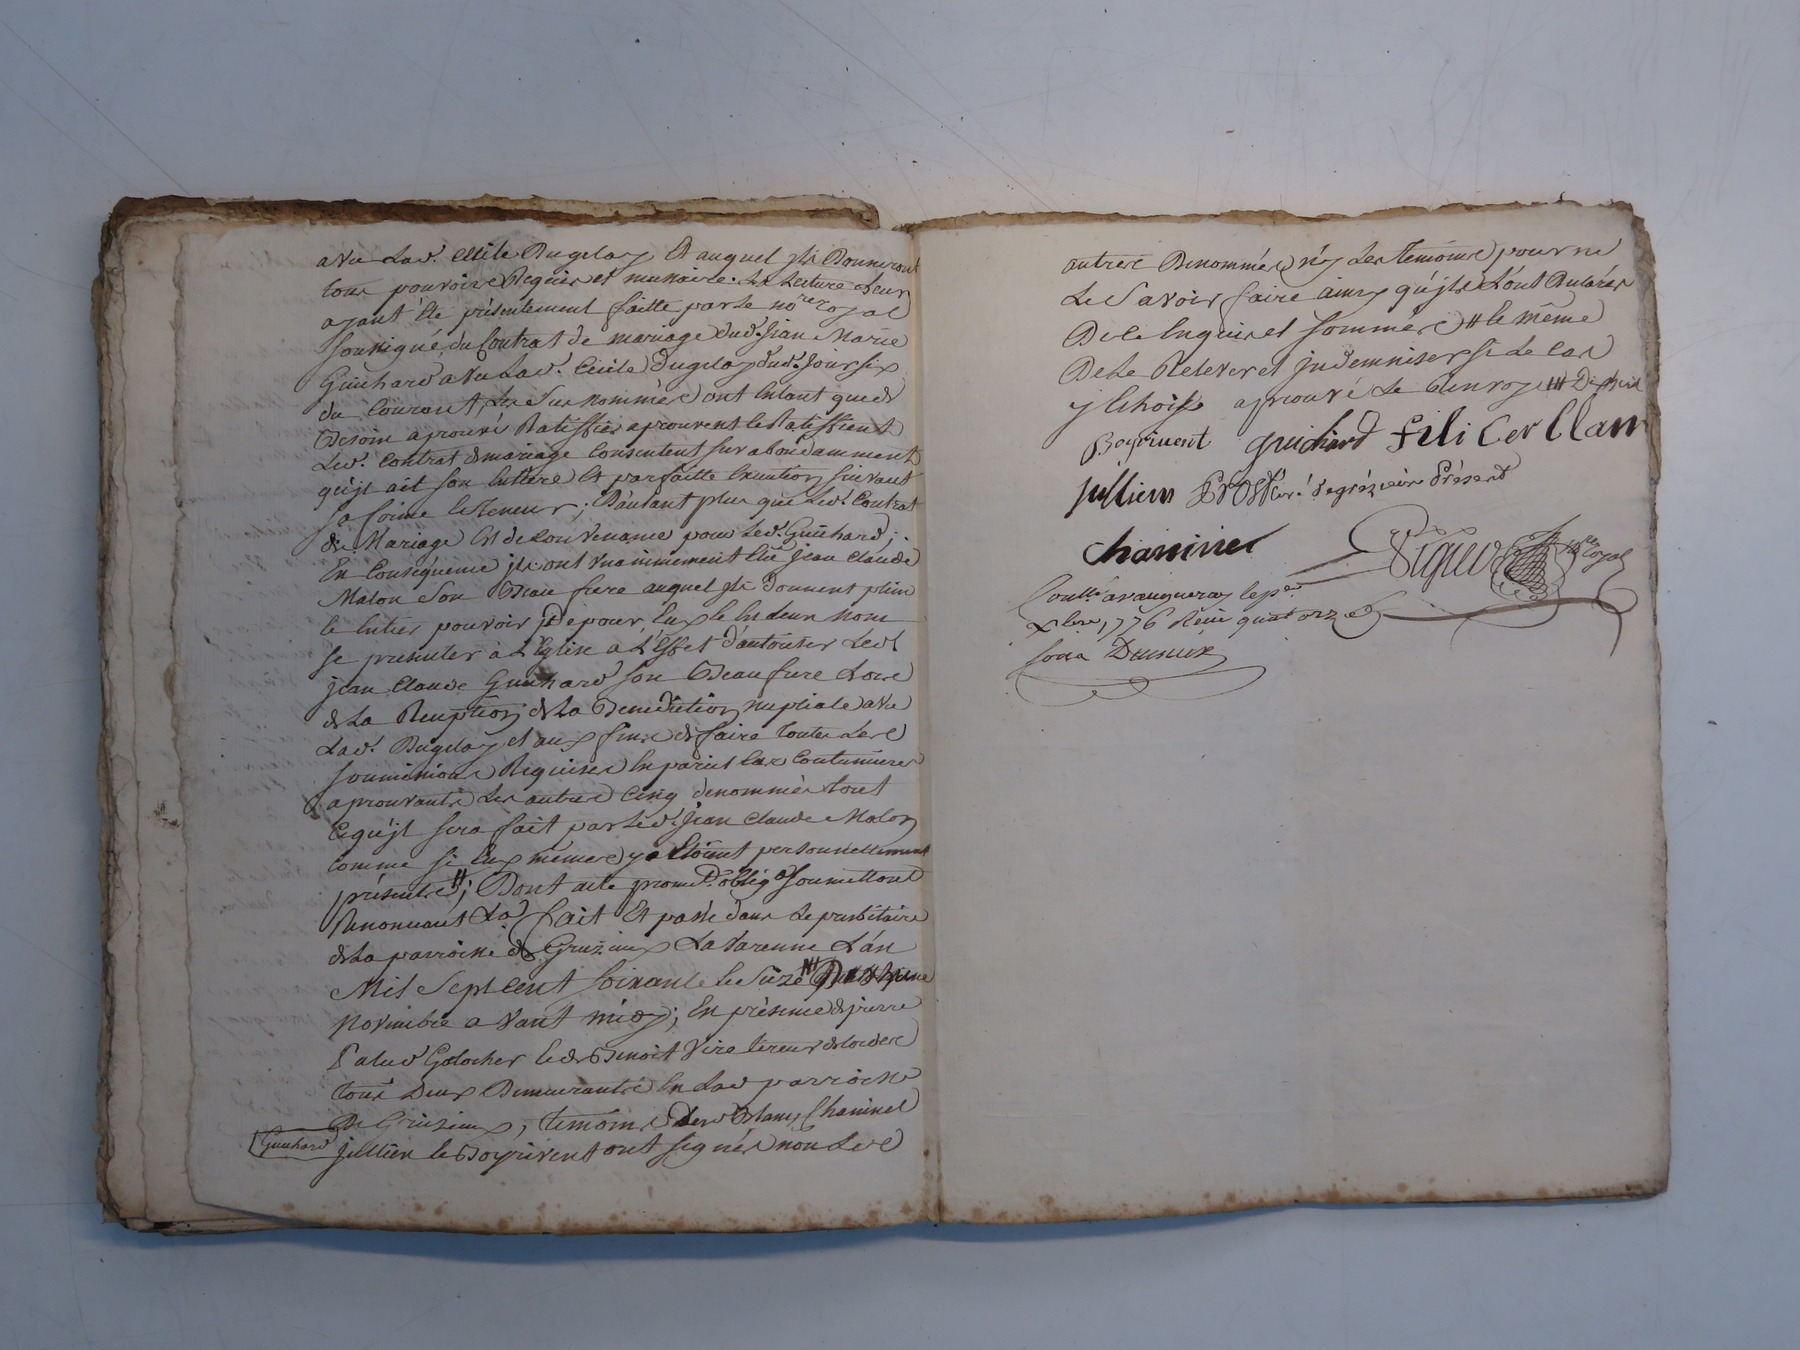 avec Lad. Cecile Dugelay Et auquel jls Donneront
tous pouvoirs Requis et necessaire. La Lecture Leur
ayant Eté présentement faitte par le nore royal
soussigné, du Contrat de mariage dud. Jean Marie
Guichard avec Lad. Cécile Dugelay dud. jour six
du Courant, Les Sus nommés ont En tant que de
Besoin aprouvé Ratiffié aprouvent et Ratiffient
Led. Contrat de mariage Consentent surabondamment
qu'jl ait son Entiere Et parfaitte Execution suivant
sa forme et teneur; D'autant plus que Led. Contrat
de Mariage Est de Convenance pour Led. Guichard;
En Consequence jls ont unanimement Elu jean Claude
Malon Son Beau frere auquel jls Donnent plein
et Entier pouvoir de pour Eux et En Leur nom
se presenter à L'Eglise a L'Effet d'autoriser Led.
jean Claude Guichard son Beau frere Lors
de La Reception de La Benediction nuptiale avec
Lad. Dugelay et aux fins de faire toutes Les
soumissions Requises En pareil Cas Coutumieres
aprouvants Les autres Cinq denommés tout
Ce qu'jl sera fait par Led. Jean Claude Malon
Comme si Eux mêmes y Etoient personnellement
présents #; Dont acte promett. oblig. soumettant
Renonceant &a fait Et passé dans Le presbitaire
de La parroisse de Grezieux La Varenne L'an
Mil Sept Cent soixante et Seize ##
Novembre avant midy; En présence de pierre
Palud Galocher et de Benoit Vire tireur de Cordes
tous Deux Demeurants En Lad parroisse
De Grezieux, temoins Blanc, Chaninel
Guichard
Jullien et Boyrivent ont signés non Les
autres Denommés ny Les temoins pour ne
Le Savoir faire ainsy qu'jls L'ont Declarés
De ce Enquis et sommés # le même
De Le Relever et jndemniser si Le Cas
y Echoist aprouvé Le Renvoy ## Dixhuit
Boyrivent guichard Blanc
jullien Curé de grézieux Présent
Chaninel
nre Royal
Conllé a vaugneray le per
Xbre 1776 Reçu quatorze
sols